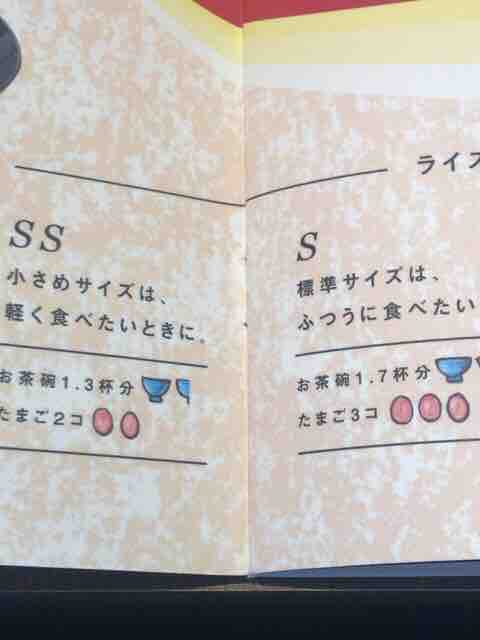 ライズ
SS
小さめサイズは、
軽く食べたいときに。
お茶碗1.3杯分
たまご2コ
S
標準サイズは、
ふつうに食べたい
お茶碗1.7杯分
たまご3コ